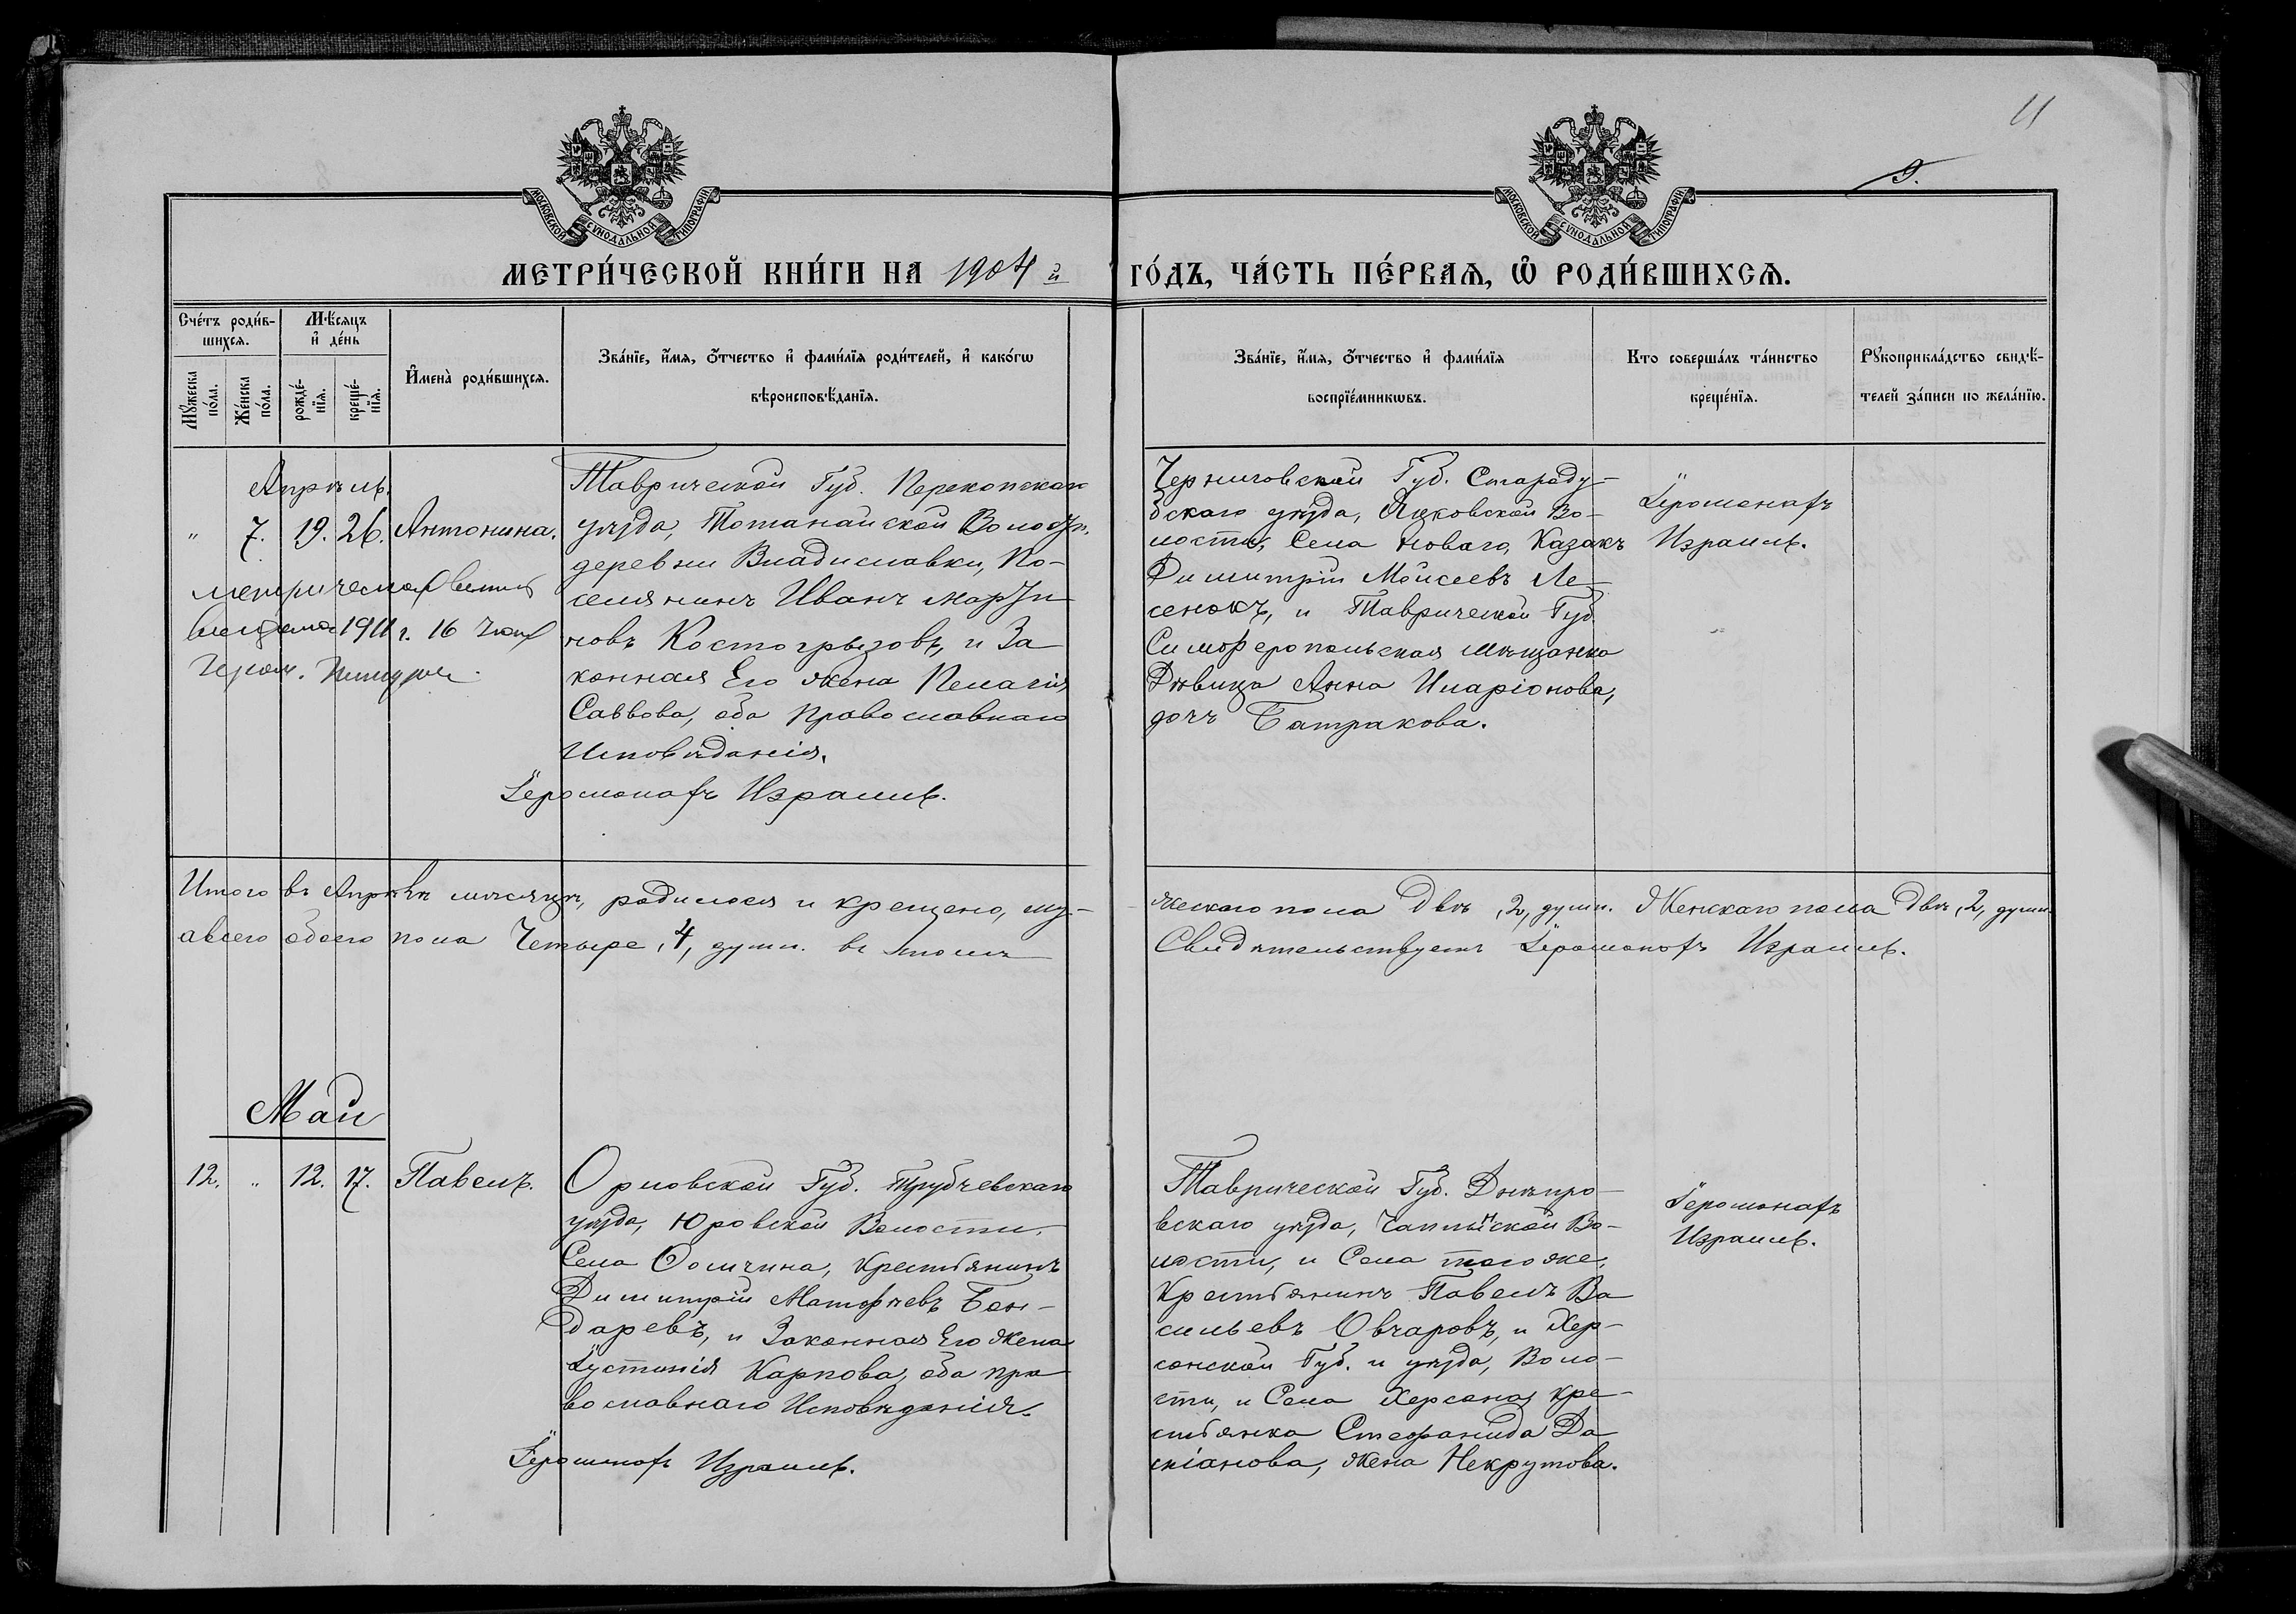 11
9.
МОСКОВСКОЙ СѴНОДАЛЬНОЙ ТИПОГРАФІИ
МОСКОВСКОЙ СѴНОДАЛЬНОЙ ТИПОГРАФІИ
МЕТРИ́ЧЕСКОЙ КНИ́ГИ НА 1904 й ГО́ДЪ, ЧА́СТЬ ПЕ́РВАѦ, Ѡ РОДИ́ВШИХСѦ.
Сче́тъ роди́в-
шихсѧ.
Мꙋ́жеска
по́ла.
Же́нска
по́ла.
Мѣ́сѧцъ
и҆ де́нь
рожде́-
нїѧ.
креще́-
нїѧ.
И҆мена̀ роди́вшихсѧ.
Зва́нїе, и҆́мѧ, ѻ҆́тчество и҆ фами́лїѧ роди́телей, и҆ како́гѡ
вѣроисповѣ́данїѧ.
Зва́нїе, и҆́мѧ, ѻ҆́тчество и҆ фами́лїѧ
воспрїе́мникѡвъ.
Кто соверша́лъ та́инство
креще́нїѧ.
Рꙋкоприкла́дство свидѣ́-
телей за́писи по жела́нїю.
Апрѣль.
" 7. 19. 26. Антонина.
1911 г. 16
Таврической Губ. Перекопскаго
уѣзда, Тотанайской Волости.
деревни Владиславки, По-
селянинъ Иванъ Марти
новъ Костогрызовъ, и За
конная Его жена Пелагія
Саввова, оба Православнаго
Исповѣданія.
Іеромонахъ Израиль.
Черниговской Губ. Стараду-
бскаго уѣзда, Во-
лости, Села Новаго, Казакъ
Димитрій Моисеевъ Ле-
сенокъ, и Таврической Губ.
Симферопольская мѣщанка
Дѣвица Анна Иларіонова,
дочь Батракова.
Іеромонахъ
Израиль.
Итого въ Апрѣлѣ мѣсяцѣ, родилося и крещено, му-
авсего обоего пола Четыре, 4, души. въ томъ
жескаго пола Двѣ, 2, души. Женскаго пола Двѣ, 2, души.
Свидѣтельствуетъ Іеромонахъ Израиль.
Май
12. " 12. 17. Павелъ.
Орловской Губ. Трубчевскаго
уѣзда, Юровской Волости.
Села Крестьянинъ
Димитрій Матфѣевъ Бон-
даревъ, и Законная Его жена
Іустинія Карпова, оба пра
вославнаго Исповѣданія.
Іеромонахъ Израиль.
Таврической Губ. Днѣпро-
вскаго уѣзда, Чаплынской Во-
лости, и Села того же,
Крестьянинъ Павелъ Ва
сильевъ Овчаровъ, и Хер-
сонской Губ. и уѣзда, Воло-
сти, и Села Херсона, кре-
стьянка Стефанида Да
жена Некрутова.
Іеромонахъ
Израиль.